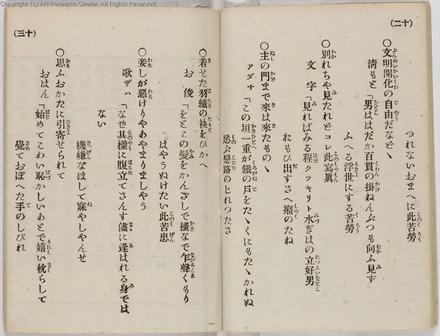 (二十)
つれないおまへに此苦勞
◯文明開化の自由だなどゝ
清もと「男ははだか百貫の掛ねんぶつも向ふ見ず
ふへる浮世にする苦勞
◯別れちや見たれどコレ此寫眞
文字「見ればみる程クツキリト水ぎはの立好男
れもひ出すさへ癪のたね
◯主の門まで來は來たものゝ
アダサ「この垣一重が鐵の戸をたゝくにもたゝかれぬ
忍ぶ戀路のとれつたさ
(三十)
◯着せた羽織の袂をひかへ
お俊「をとこの髪をかんざしで搔なで乍聲くもり
はやうぬけたい此苦患
◯妾しが惡けりやあやまりましやう
歌ザハ「なぜ其樣に腹立てさんす儘に逢はれる身では
ない
機嫌なほして寐やしやんせ
◯思ふおかたに引寄せられて
おはん「始めてこわい恥かしいあとで嬉い枕らして
覺ておぼへた手のしびれ